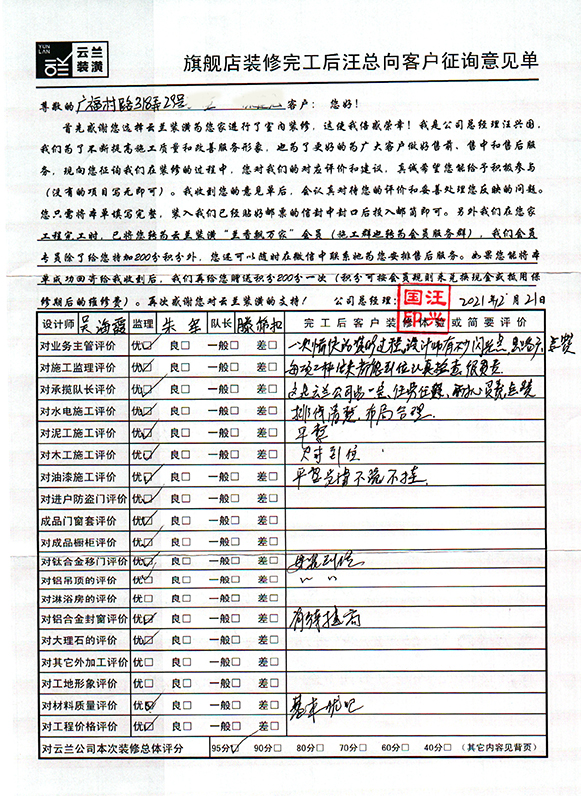 YUN LAN 云兰装潢
旗舰店装修完工后汪总向客户征询意见单
尊敬的广福村路318弄29号 客户：您好！
首先感谢您选择云兰装潢为您家进行了室内装修，这使我倍感荣幸！我是公司总经理汪兴国，
我们为了不断提高施工质量和改善服务形象，也为了更好的为广大客户做好售前、售中和售后服
务，现向您征询我们在装修的过程中，您对我们的对应评价和建议，真诚希望您能给予积极参与
（没有的项目写无即可）。我收到您的意见单后，会认真对待您的评价和妥善处理您反映的问题。
您只需将本单填写完整，装入我们已经贴好邮票的信封中封口后投入邮筒即可。另外我们在您家
工程完工时，已将您转为云兰装潢“兰香飘万家”会员（施工群也转为会员服务群），我们会员
专员除了给您特加200分积分外，您还可以随时在微信中联系她为您安排售后服务。如果您能将本
单成功回寄给我收到后，我们再给您赠送积分200分一次（积分可按会员规则来兑换现金或抵用保
修期后的维修费）。再次感谢您对云兰装潢的支持！ 公司总经理： 汪兴国印 2021年12月21日
设计师 吴海霞 监理 朱军 队长 滕振松 完工后客户装修体验或简要评价
对业务主管评价 优☑ 良□ 一般□ 差□ 一次愉快的装修过程,设计师有不少闪光点
对施工监理评价 优☑ 良□ 一般□ 差□ 每项工种结束后能到位认真检查,很负责
对承揽队长评价 优☑ 良□ 一般□ 差□ 这是云兰公司的一员、任劳任怨、
对水电施工评价 优☑ 良□ 一般□ 差□ 排线清楚、布局合理.
对泥工施工评价 优☑ 良□ 一般□ 差□ 平整
对木工施工评价 优☑ 良□ 一般□ 差□ 尺寸到位
对油漆施工评价 优☑ 良□ 一般□ 差□ 平整光滑不流不挂.
对进户防盗门评价 优☑ 良□ 一般□ 差□
成品门窗套评价 优☑ 良□ 一般□ 差□
对成品橱柜评价 优□ 良□ 一般□ 差□
对钛合金移门评价 优☑ 良□ 一般□ 差□ 安装到位
对铝吊顶的评价 优☑ 良□ 一般□ 差□ 〃 〃
对淋浴房的评价 优□ 良□ 一般□ 差□
对铝合金封窗评价 优☑ 良□ 一般□ 差□ 有待提高
对大理石的评价 优☑ 良□ 一般□ 差□
对其它外加工评价 优□ 良□ 一般□ 差□
对工地形象评价 优□ 良□ 一般□ 差□
对材料质量评价 优☑ 良□ 一般□ 差□ 基本统配
对工程价格评价 优☑ 良□ 一般□ 差□
对云兰公司本次装修总体评分 95分☑ 90分□ 80分□ 70分□ 60分□ 40分□ （其它内容见背页）